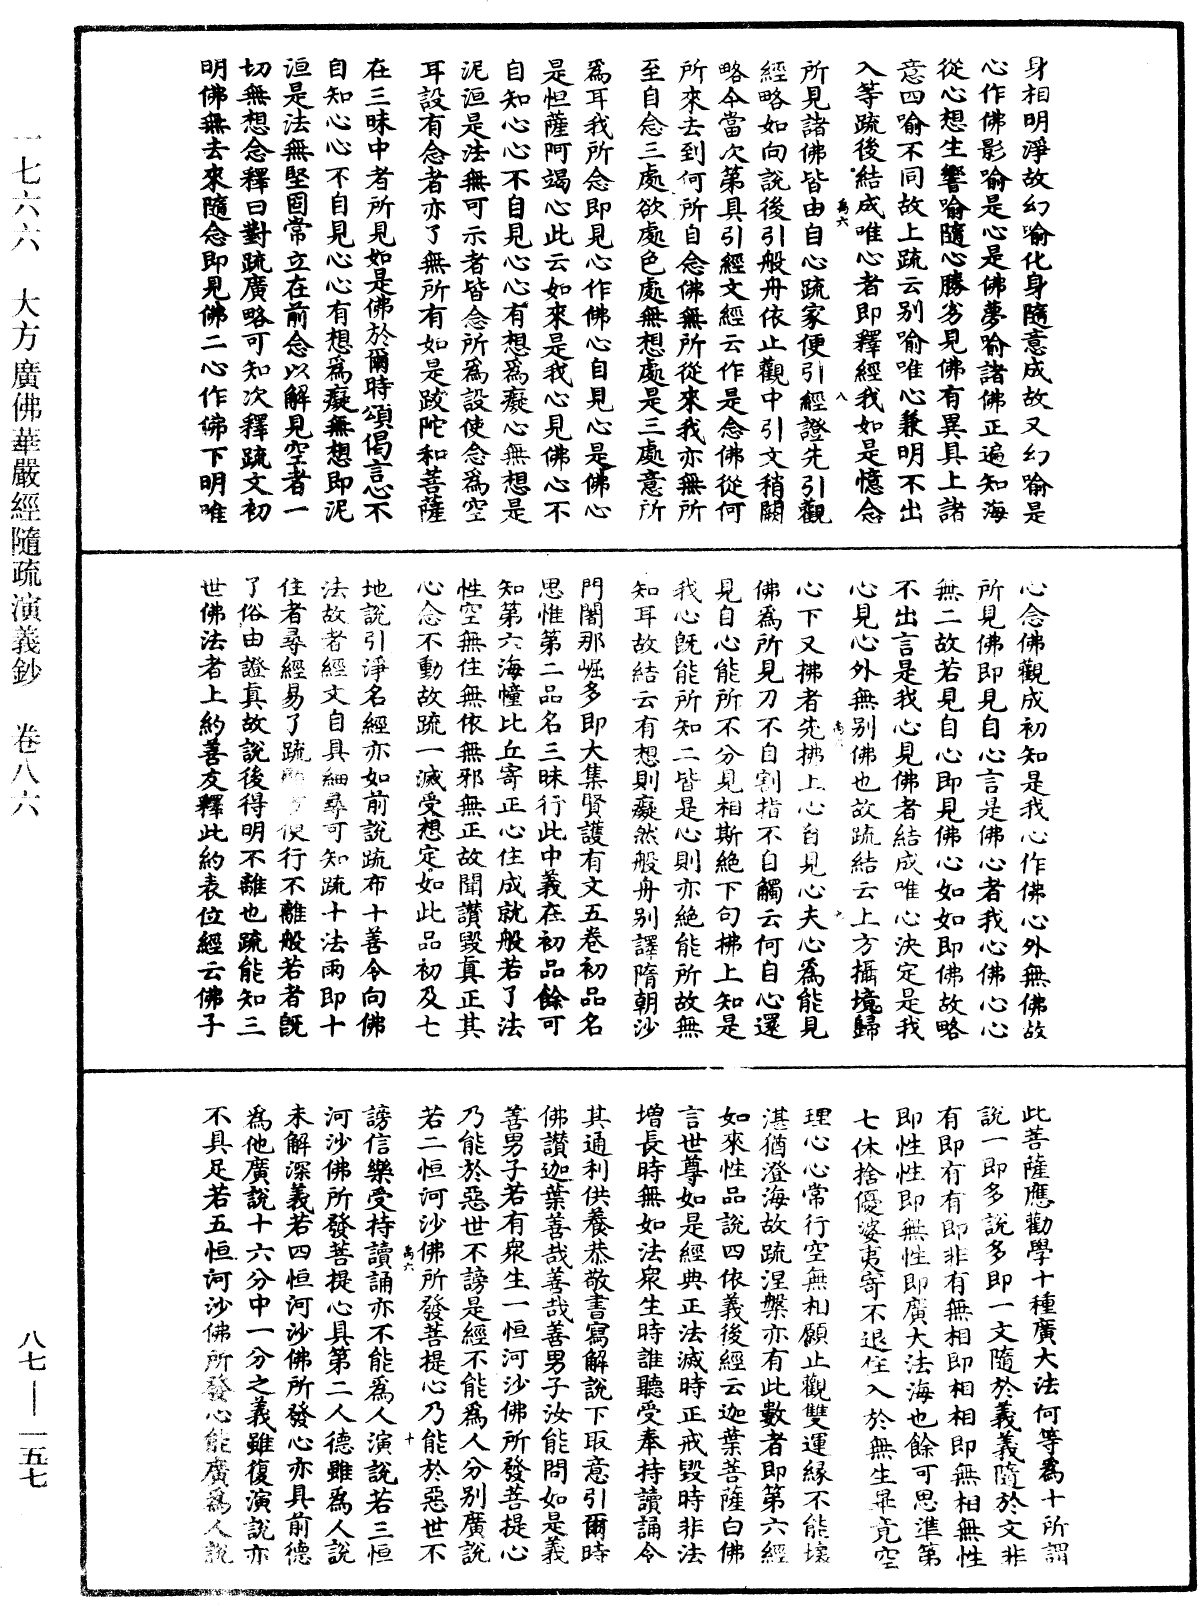 一七六六　大方廣佛華嚴經隨疏演義鈔　卷八六
八七—一五七
身相明淨故幻喻化身隨意成故又幻喻是
心作佛影喻是心是佛夢喻諸佛正遍知海
從心想生響喻隨心勝劣見佛有異具上諸
意四喻不同故上疏云別喻唯心兼明不出
入等疏後結成唯心者即釋經我如是憶念
禹六
八
所見諸佛皆由自心疏家便引經證先引觀
經略如向說後引般舟依止觀中引文稍闕
略今當次第具引經文經云作是念佛從何
所來去到何所自念佛無所從來我亦無所
至自念三處欲處色處無想處是三處意所
為耳我所念即見心作佛心自見心是佛心
是怛薩阿竭心此云如來是我心見佛心不
自知心心不自見心心有想為癡心無想是
泥洹是法無可示者皆念所為設使念為空
耳設有念者亦了無所有如是跋陀和菩薩
在三昧中者所見如是佛於爾時頌偈言心不
自知心心不自見心心有想為癡無想即泥
洹是法無堅固常立在前念以解見空者一
切無想念釋曰對疏廣略可知次釋疏文初
明佛無去來隨念即見佛二心作佛下明唯
心念佛觀成初知是我心作佛心外無佛故
所見佛即見自心言是佛心者我心佛心心
無二故若見自心即見佛心如如即佛故略
不出言是我心見佛者結成唯心決定是我
心見心外無別佛也故疏結云上方攝境歸
心下又拂者先拂上心自見心夫心為能見
佛為所見刀不自割指不自觸云何自心還
見自心能所不分見相斯絕下句拂上知是
我心既能所知二皆是心則亦絕能所故無
知耳故結云有想則癡然般舟別譯隋朝沙
門闍那崛多即大集賢護有文五卷初品名
思惟第二品名三昧行此中義在初品餘可
知第六海幢比丘寄正心住成就般若了法
性空無住無依無邪無正故聞讚毀真正其
心念不動故疏一滅受想定如此品初及七
地說引淨名經亦如前說疏布十善令向佛
法故者經文自具細尋可知疏十法雨即十
住者尋經易了疏便行不離般若者既
了俗由證真故說後得明不離也疏能知三
世佛法者上約善友釋此約表位經云佛子
此菩薩應勸學十種廣大法何等為十所謂
說一即多說多即一文隨於義義隨於文非
有即有有即非有無相即相相即無相無性
即性性即無性即廣大法海也餘可思準第
七休捨優婆夷寄不退住入於無生畢竟空
理心心常行空無相願止觀雙運緣不能壞
湛猶澄海故疏涅槃亦有此數者即第六經
如來性品說四依義後經云迦葉菩薩白佛
言世尊如是經典正法滅時正戒毀時非法
增長時無如法眾生時誰聽受奉持讀誦令
其通利供養恭敬書寫解說下取意引爾時
佛讚迦葉善哉善哉善男子汝能問如是義
善男子若有眾生一恒河沙佛所發菩提心
乃能於惡世不謗是經不能為人分別廣說
若二恒河沙佛所發菩提心乃能於惡世不
禹六
十
謗信樂受持讀誦亦不能為人演說若三恒
河沙佛所發菩提心具第二人德雖為人說
未解深義若四恒河沙佛所發心亦具前德
為他廣說十六分中一分之義雖復演說亦
不具足若五恒河沙佛所發心能廣為人說